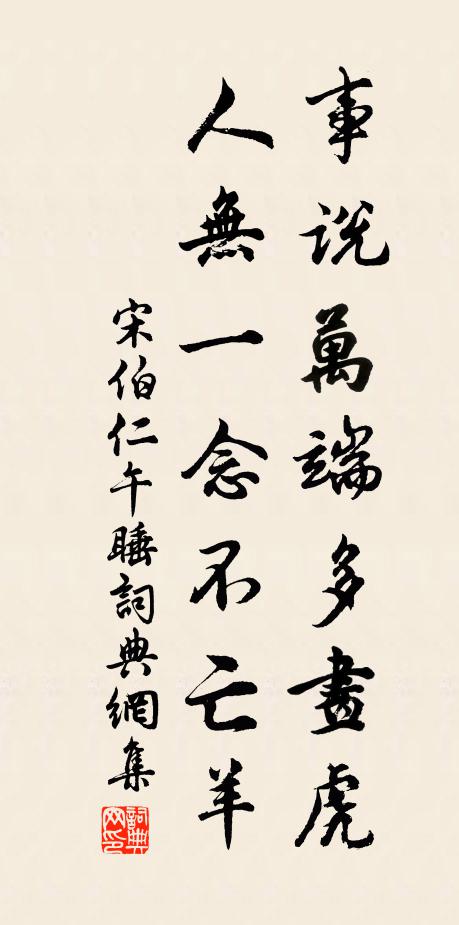 事説萬端多畫虎
人無一念不亡羊
宋伯仁午睡詞典網集
詞典网印